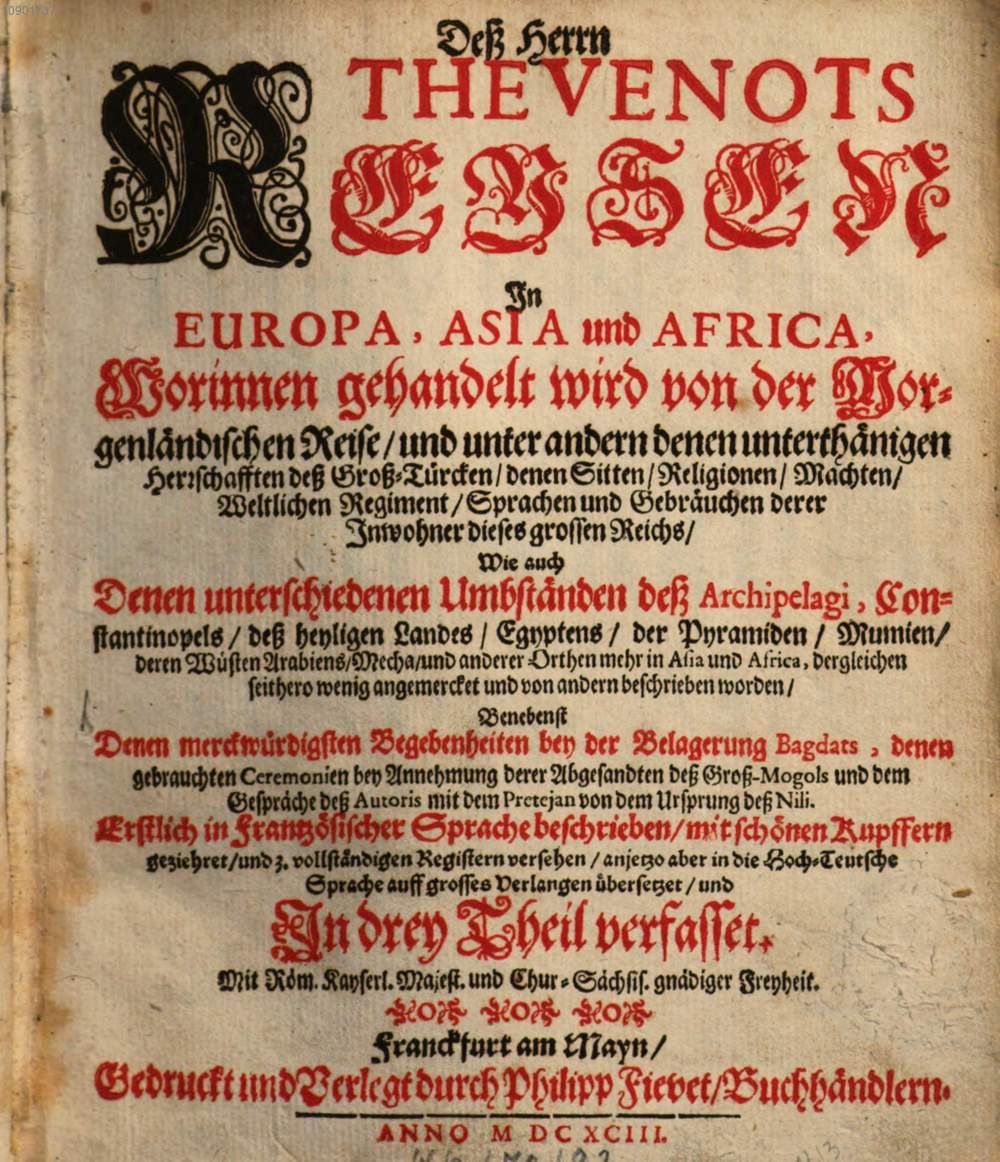 Deß Herrn
THEVENOTS
REYSEN
In
EUROPA, ASIA und AFRICA,
Worinnen gehandelt wird von der Mor-
genländischen Reise/und unter andern denen unterthänigen
Herrschafften deß Groß-Türcken/denen Sitten/Religionen/Machten/
Weltlichen Regiment/Sprachen und Gebräuchen derer
Inwohner dieses grossen Reichs/
Wie auch
Denen unterschiedenen Umbständen deß Archipelagi, Con-
stantinopels/deß heyligen Landes/Egyptens/der Pyramiden/Mumien/
deren Wüsten Arabiens/Mecha/und anderer Orthen mehr in Asia und Africa, dergleichen
seithero wenig angemercket und von andern beschrieben worden/
Benebenst
Denen merckwürdigsten Begebenheiten bey der Belagerung Bagdats, denen
gebrauchten Ceremonien bey Annehmung derer Abgesandten deß Groß-Mogols und dem
Gespräche deß Autoris mit dem Pretejan von dem Ursprung deß Nili.
Erstlich in Frantzösischer Sprache beschrieben/mit schönen Kupffern
geziehret/und 3. vollständigen Registern versehen/anjetzo aber in die Hoch-Teutsche
Sprache auff grosses Verlangen übersetzet/und
In drey Theil verfasset.
Mit Röm. Kayserl. Majest. und Chur-Sächsis. gnädiger Freyheit.
Franckfurt am Mayn/
Gedruckt und Verlegt durch Philipp Fievet/Buchhändlern.
ANNO M DC XCIII.